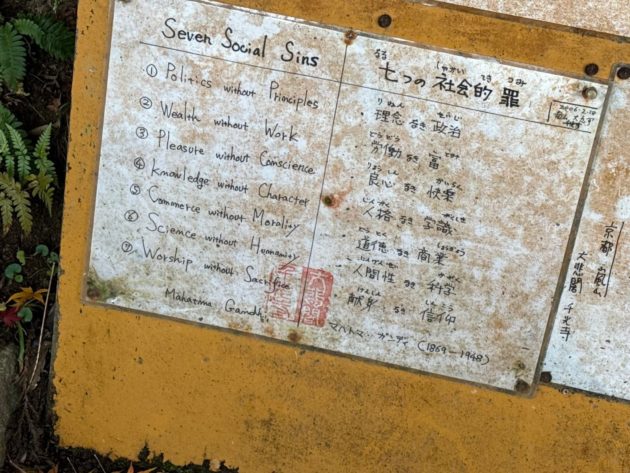 Seven Social Sins
① Politics without Principles
② Wealth without Work
③ Pleasure without Conscience
④ Knowledge without Character
⑤ Commerce without Morality
⑥ Science without Humanity
⑦ Worship without Sacrifice
Mahatma Gandhi
七つの社会的罪
・理念なき政治
・労働なき富
・良心なき快楽
・人格なき学識
・道徳なき商業
・人間性なき科学
・献身なき信仰
マハトマ・ガンディー (1869-1948)
京都 嵐山
大悲閣 千光寺